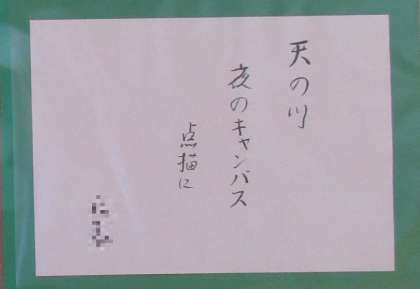 天の川
夜のキャンバス
点描に